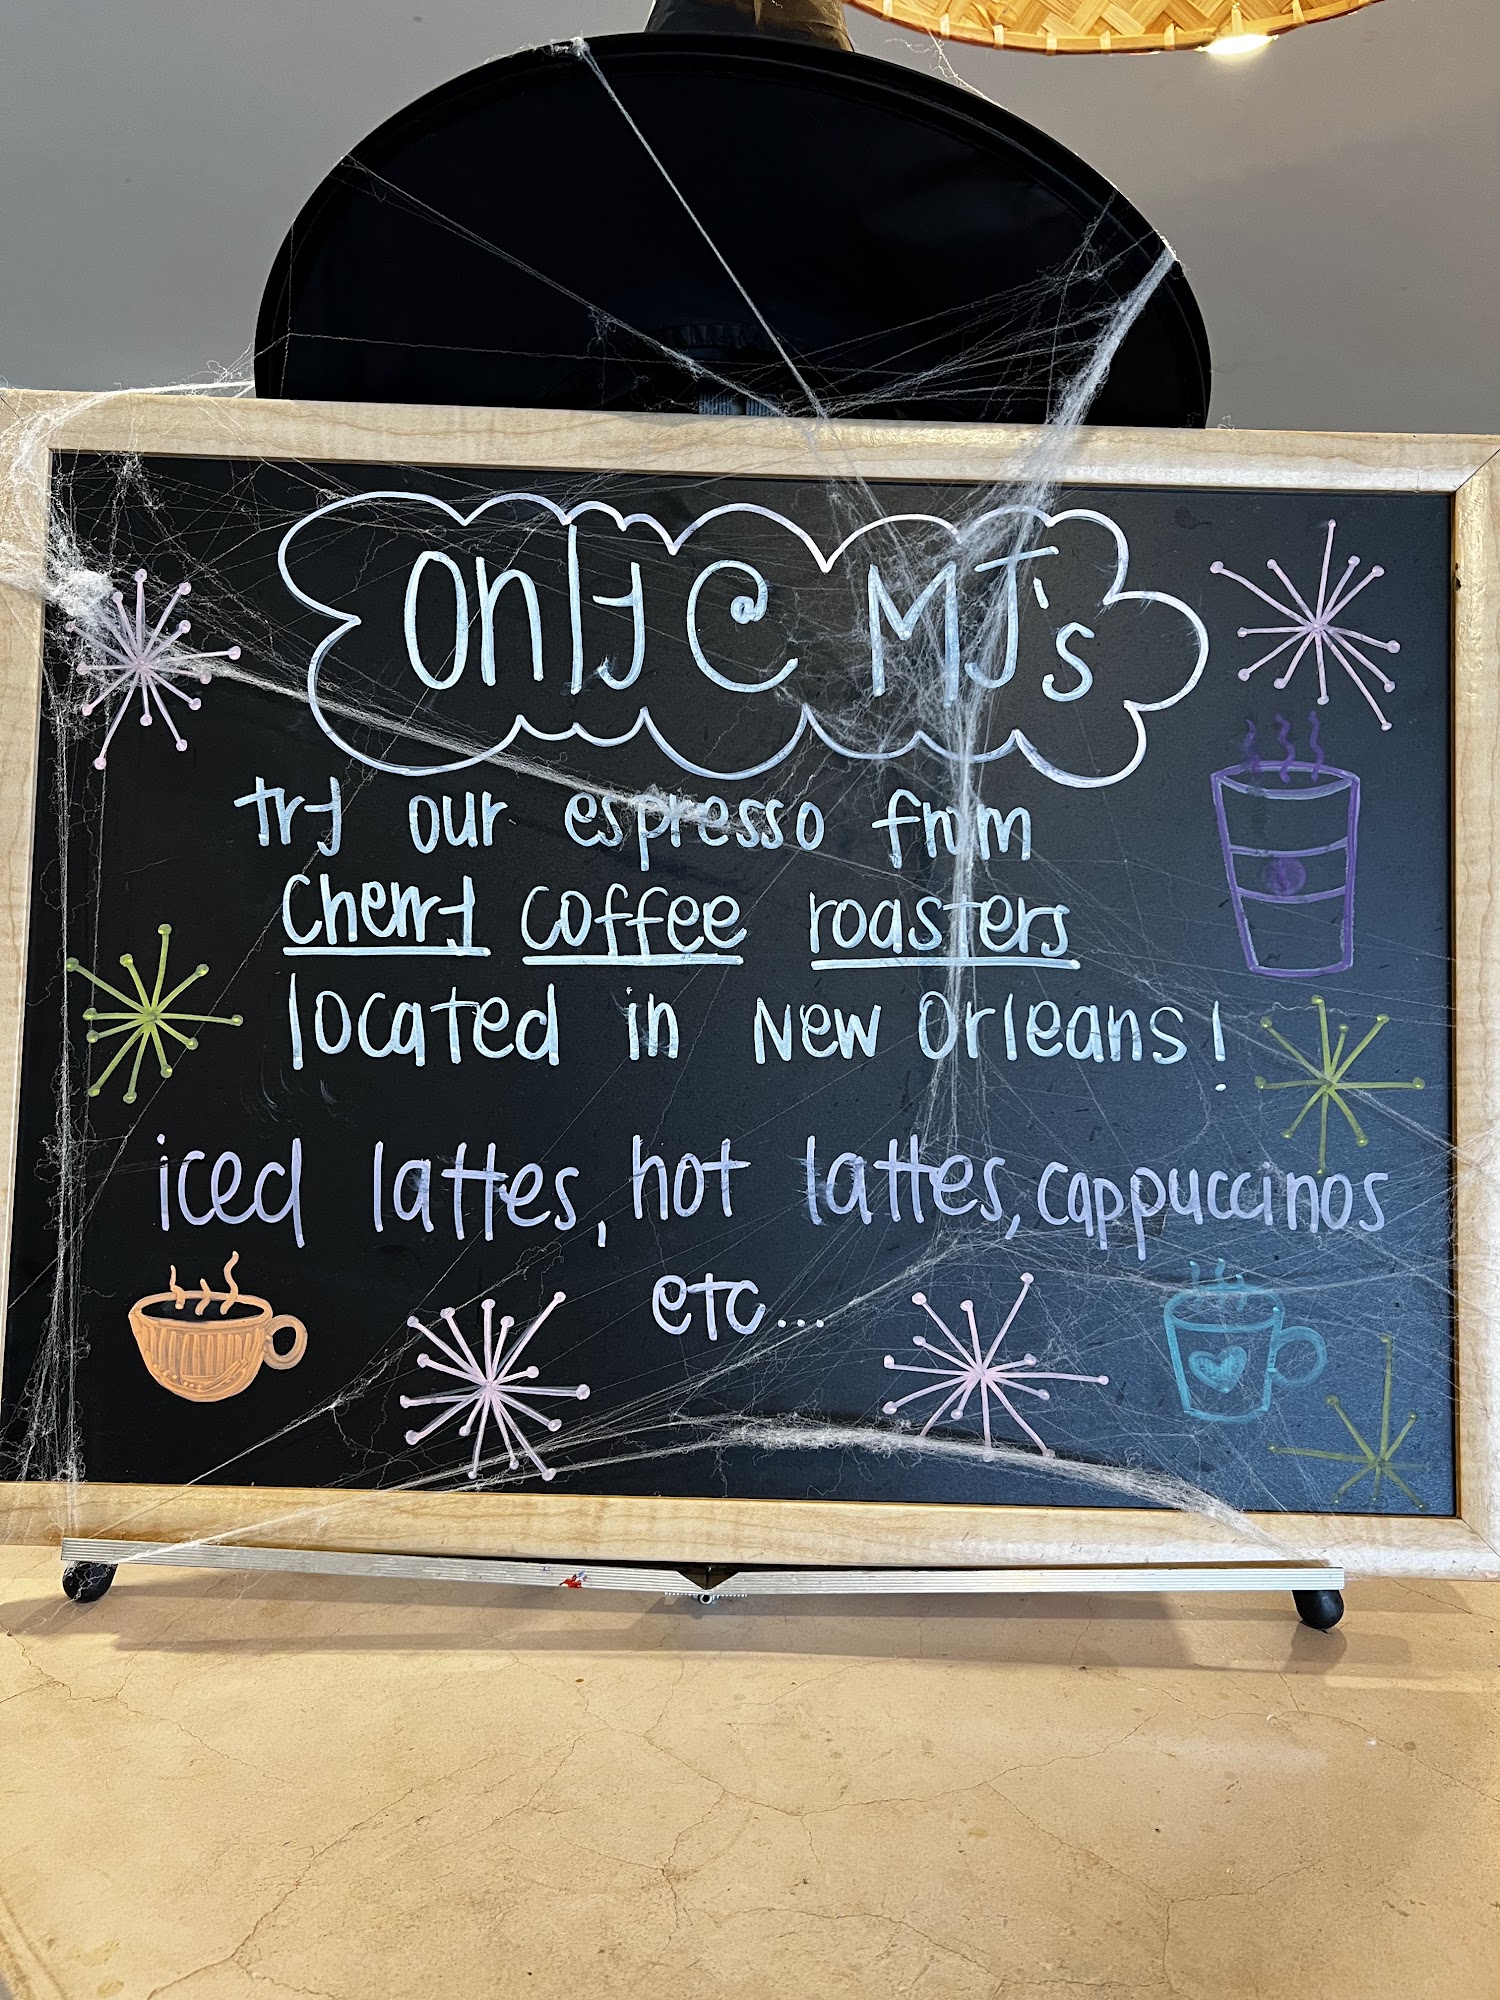 only @ MJ's
try our espresso from
Cherry coffee roasters
located in New Orleans!
iced lattes, hot lattes, cappuccinos
etc...